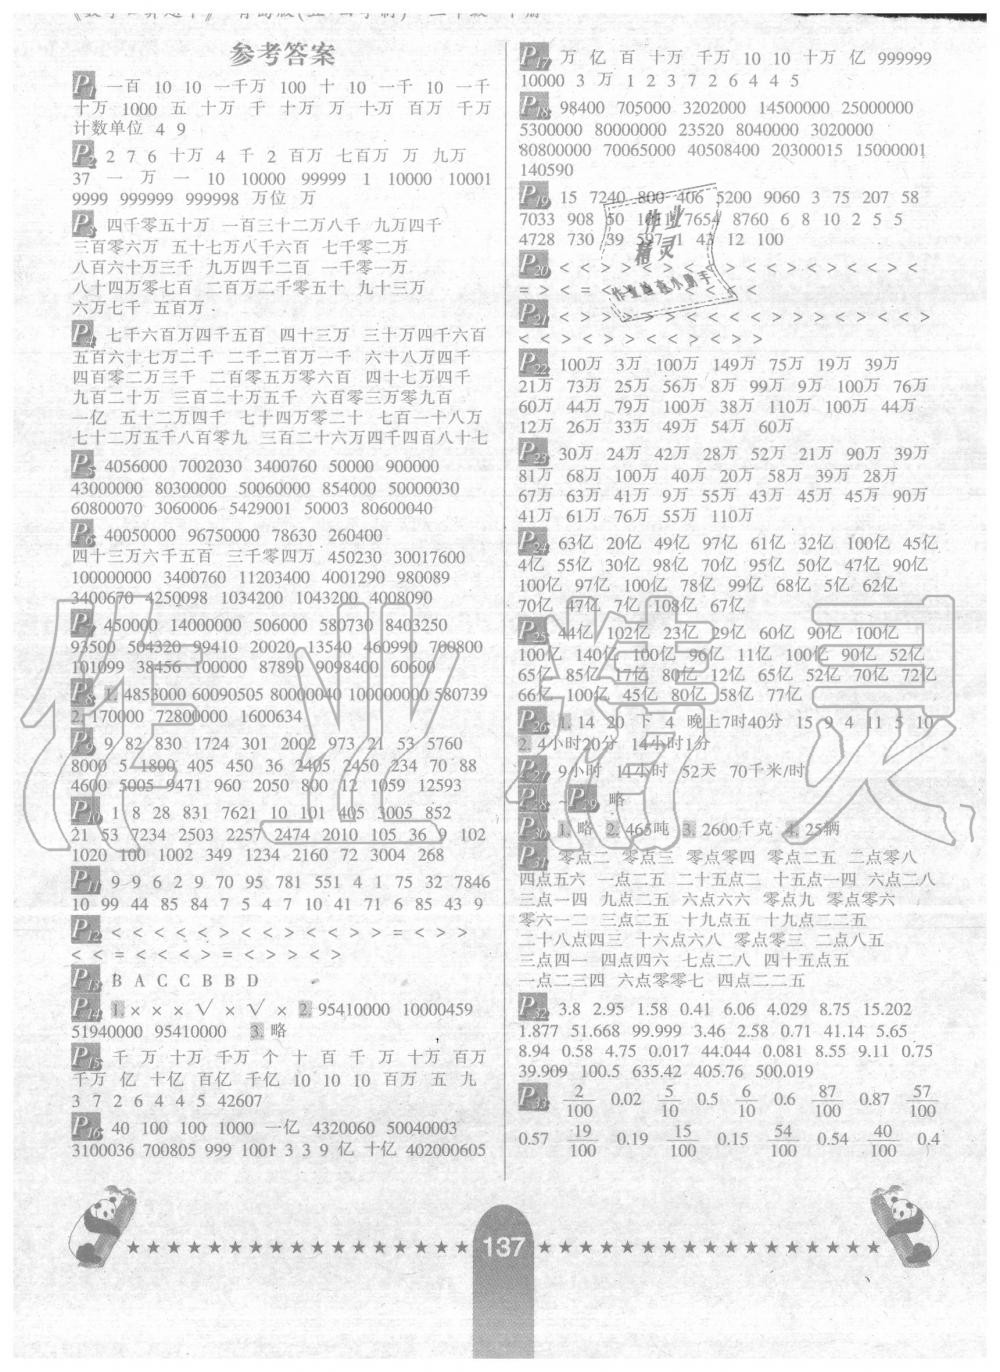 参考答案
P1 一百 10 10 一千万 100 十 10 一千 10 一千
十万 1000 五 十万 千 十万 万 十万 百万 千万
计数单位 4 9
P2 2 7 6 十万 4 千 2 百万 七百万 万 九万
37 一 万 一 10 10000 99999 1 10000 10001
9999 999999 999998 万位 万
P3 四千零五十万 一百三十二万八千 九万四千
三百零六万 五十七万八千六百 七千零二万
八百六十万三千 九万四千二百 一千零一万
八十四万零七百 二百万二千零五十 九十三万
六万七千 五百万
P4 七千六百万四千五百 四十三万 三十万四千六百
五百六十七万二千 二千二百万一千 六十八万四千
四百零二万三千 二百零五万零六百 四十七万四千
九百二十万 三百二十万五千 六百零三万零九百
一亿 五十二万四千 七十四万零二十 七百一十八万
七十二万五千八百零九 三百二十六万四千四百八十七
P5 4056000 7002030 3400760 50000 900000
43000000 80300000 50060000 854000 50000030
60800070 3060006 5429001 50003 80600040
P6 40050000 96750000 78630 260400
四十三万六千五百 三千零四万 450230 30017600
100000000 3400760 11203400 4001290 980089
3400670 4250098 1034200 1043200 4008090
P7 450000 14000000 506000 580730 8403250
93500 504320 99410 20020 13540 460990 700800
101099 38456 100000 87890 9098400 60600
P8 1. 4853000 60090505 80000040 100000000 580739
2. 170000 72800000 1600634
P9 9 82 830 1724 301 2002 973 21 53 5760
8000 5 1800 405 450 36 2405 2450 234 70 88
4600 5005 9471 960 2050 800 12 1059 12593
P10 1 8 28 831 7621 10 101 405 3005 852
21 53 7234 2503 2257 2474 2010 105 36 9 102
1020 100 1002 349 1234 2160 72 3004 268
P11 9 9 6 2 9 70 95 781 551 4 1 75 32 7846
10 99 44 85 84 7 5 4 7 10 41 71 6 85 43 9
P12 < < < < < > < > < > < > > = < > >
< < = < < < > = < > > < >
P13 B A C C B B D
P14 1. × × × √ × √ × 2. 95410000 10000459
51940000 95410000 3. 略
P15 千 万 十万 千万 个 十 百 千 万 十万 百万
千万 亿 十亿 百亿 千亿 10 10 10 百万 五 九
3 7 2 6 4 4 5 42607
P16 40 100 100 1000 一亿 4320060 50040003
3100036 700805 999 1001 3 3 9 亿 十亿 402000605
P17 万 亿 百 十万 千万 10 10 十万 亿 999999
10000 3 万 1 2 3 7 2 6 4 4 5
P18 98400 705000 3202000 14500000 25000000
5300000 80000000 23520 8040000 3020000
80800000 70065000 40508400 20300015 15000001
140590
P19 15 7240 800 406 5200 9060 3 75 207 58
7033 908 50 7654 8760 6 8 10 2 5 5
4728 730 39 597 1 43 12 100
P20
P21
P22 100万 3万 100万 149万 75万 19万 39万
21万 73万 25万 56万 8万 99万 9万 100万 76万
60万 44万 79万 100万 38万 110万 100万 44万
12万 26万 33万 49万 54万 60万
P23 30万 24万 42万 28万 52万 21万 90万 39万
81万 68万 100万 40万 20万 58万 39万 28万
67万 63万 41万 9万 55万 43万 45万 45万 90万
41万 61万 76万 55万 110万
P24 63亿 20亿 49亿 97亿 61亿 32亿 100亿 45亿
4亿 55亿 30亿 98亿 70亿 95亿 50亿 47亿 90亿
100亿 97亿 100亿 78亿 99亿 68亿 5亿 62亿
70亿 47亿 7亿 108亿 67亿
P25 44亿 102亿 23亿 29亿 60亿 90亿 100亿
100亿 140亿 100亿 96亿 11亿 100亿 90亿 52亿
65亿 85亿 17亿 80亿 12亿 65亿 52亿 70亿 72亿
66亿 100亿 45亿 80亿 58亿 77亿
P26 1. 14 20 下 4 晚上7时40分 15 9 4 11 5 10
2. 4小时20分 14小时1分
P27 9小时 11小时 52天 70千米/时
P28 ~ P29 略
P30 1. 略 2. 465吨 3. 2600千克 4. 25辆
P31 零点二 零点三 零点零四 零点二五 二点零八
四点五六 一点二五 二十五点二 十五点一四 六点二八
三点一四 九点二五 六点六六 零点九 零点零六
零六一二 三点二五 十九点五 十九点二二五
二十八点四三 十六点六八 零点零三 二点八五
三点四一 四点四六 七点二八 四十五点五
一点二三四 六点零零七 四点二二五
P32 3.8 2.95 1.58 0.41 6.06 4.029 8.75 15.202
1.877 51.668 99.999 3.46 2.58 0.71 41.14 5.65
8.94 0.58 4.75 0.017 44.044 0.081 8.55 9.11 0.75
39.909 100.5 635.42 405.76 500.019
P33 2/100 0.02 5/10 0.5 6/10 0.6 87/100 0.87 57/100
0.57 19/100 0.19 15/100 0.15 54/100 0.54 40/100 0.4
137
作业精灵